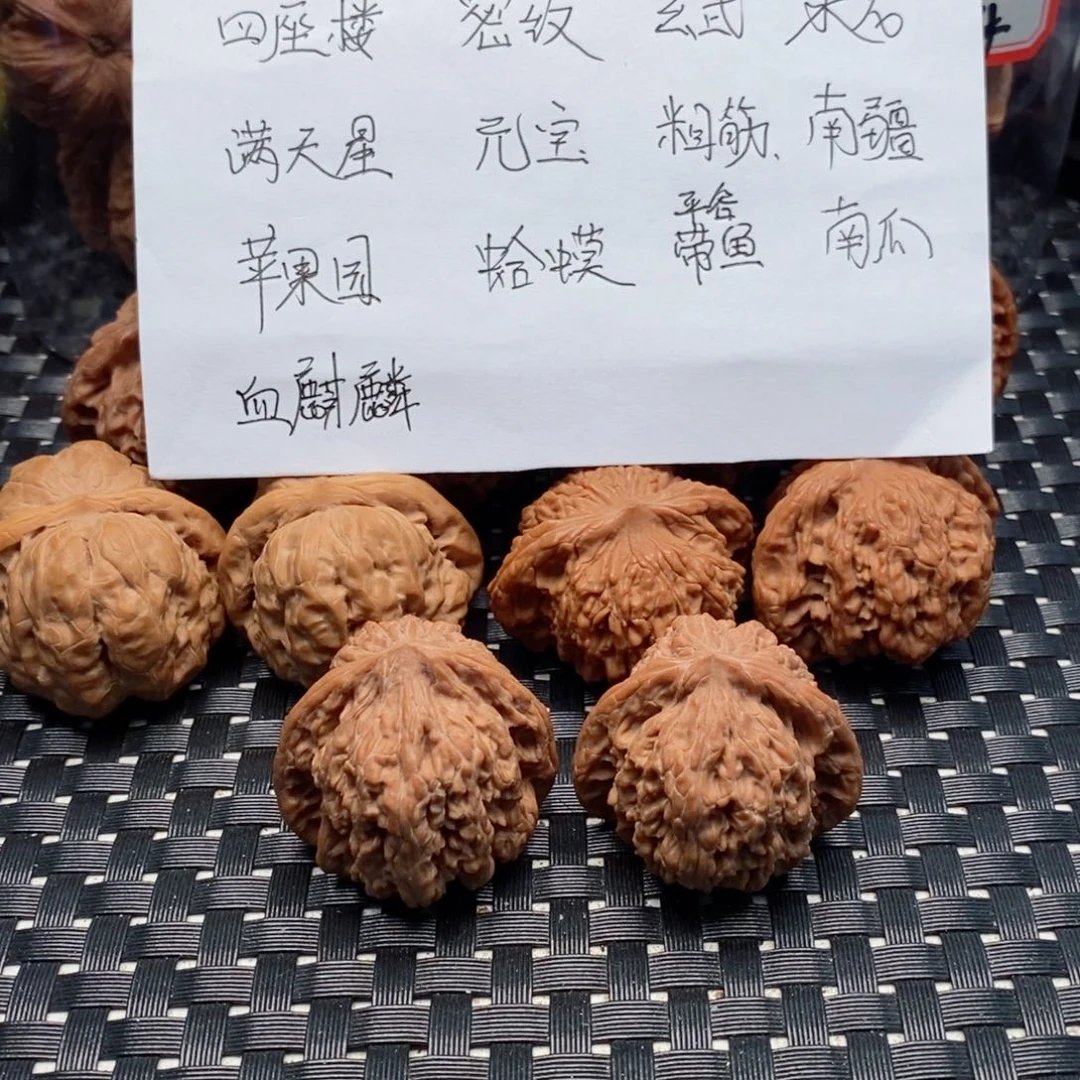 四座楼 密纹 玄武
满天星 元宝 粗筋、南疆
苹果园 蛤蟆 平谷带鱼 南瓜
血麒麟